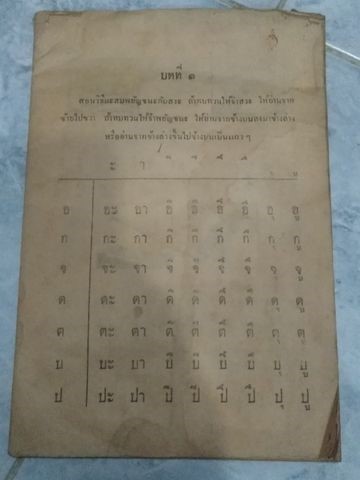 บทที่ ๑
สอนวิธีผะสมพยัญชนะกับสระ ถ้าทบทวนให้จำสระ ให้อ่านจาก
ซ้ายไปขวา ถ้าทบทวนให้จำพยัญชนะ ให้อ่านจากข้างบนลงมาข้างล่าง
หรืออ่านจากข้างล่างขึ้นไปข้างบนเป็นแถว ๆ
ะ า ิ ี ึ ื ุ ู
อ อะ อา อิ อี อึ อื อุ อู
ก กะ กา กิ กี กึ กื กุ กู
จ จะ จา จิ จี จึ จื จุ จู
ด ดะ ดา ดิ ดี ดึ ดื ดุ ดู
ต ตะ ตา ติ ตี ตึ ตื ตุ ตู
บ บะ บา บิ บี บึ บื บุ บู
ป ปะ ปา ปิ ปี ปึ ปื ปุ ปู